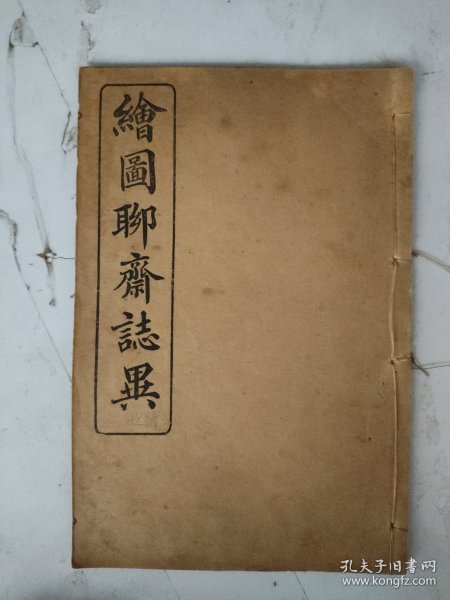 繪圖聊齋誌異
孔夫子旧书网
www.kongfz.com